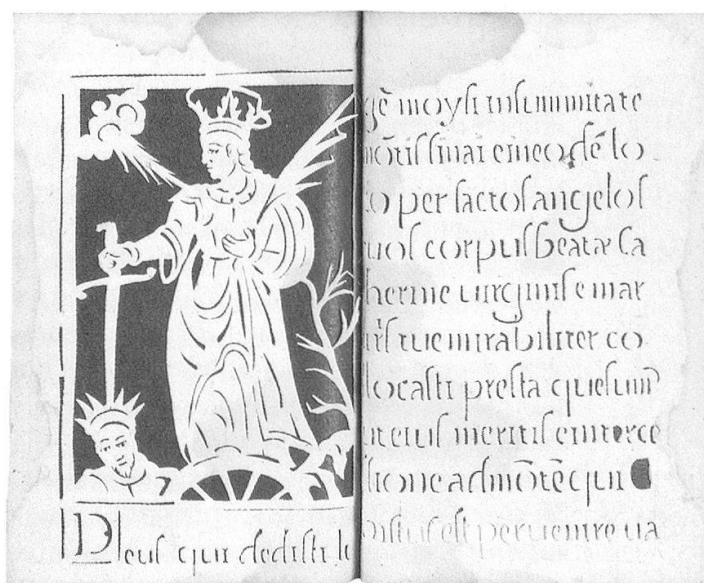 Deus qui dedisti le
gē moysi insummitate
mōtis sinai et ineodē lo
co per sāctos angelos
tuos corpus beatæ ca
therine uirginis e mar
tiris tue mirabiliter co
llocasti presta quesumꝰ
ut eius meritis et interce
ssione ad mōtē qui
xp̄istus est peruenire ua